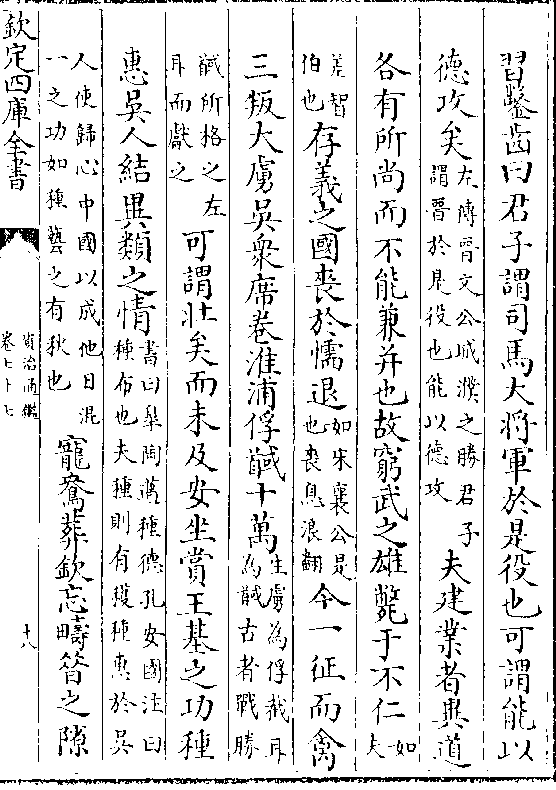 習鑿齒曰君子謂司馬大將軍於是役也可謂能以
德攻矣左傳晉文公城濮之勝君子謂晉於是役也能以德攻夫建業者異道
各有所尚而不能兼并也故窮武之雄斃于不仁如夫
差智伯也存義之國喪於懦退如宋襄公是也喪息浪翻今一征而禽
三叛大虜吳衆席卷淮浦俘馘十萬生虜為俘截耳為馘古者戰勝
馘所格之左耳而獻之可謂壯矣而未及安坐賞王基之功種
惠吳人結異類之情書曰臯陶邁種德孔安國注曰種布也夫種則有穫種惠於吳
人使歸心中國以成他日混一之功如種藝之有秋也寵鴦葬欽忘疇昔之隙
欽定四庫全書
資治通鑑
卷七十七
十八